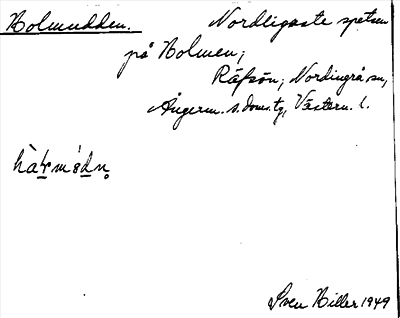 Holmudden. Nordligaste spetsen
på Holmen;
Räfsön, Nordingrå sn,
Ångerm. s. doms.tg, Västern. l.
Sven Hiller 1949